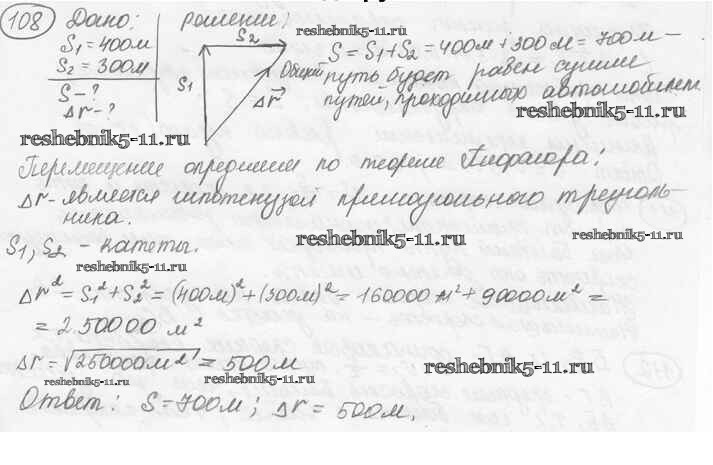 108 Дано: решение:
S₁ = 400м
S₂ = 300м
S - ?
Δr - ?
S₂
S₁
Δr
reshebnik5-11.ru
S = S₁ + S₂ = 400м + 300м = 700м —
Общий путь будет равен сумме
путей, проходимых автомобилем
reshebnik5-11.ru
reshebnik5-11.ru
Перемещение определим по теореме Пифагора:
Δr - является гипотенузой прямоугольного треуголь-
ника.
reshebnik5-11.ru
reshebnik5-11.ru
S₁, S₂ - катеты.
reshebnik5-11.ru
Δr² = S₁² + S₂² = (400м)² + (300м)² = 160000 м² + 90000м² =
= 250000 м²
Δr = √250000м² = 500м
reshebnik5-11.ru
reshebnik5-11.ru
reshebnik5-11.ru
Ответ: S = 700м; Δr = 500м.